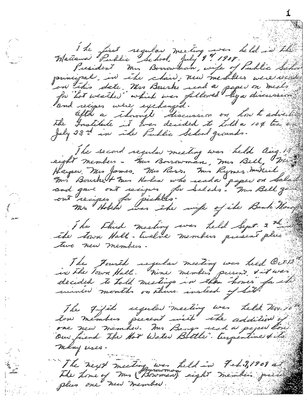 1
The first regular meeting was held in the
Mattawa Public School July 9th 1908.
President Mrs Borrowman, wife of Public School
principal, in the chair, new members were
in this date. Mrs Bourke read a paper on meals
for hot weather which was followed by a discussion
and recipes were exchanged.
After a thorough discussion on how to
the Institute it was decided to hold a
July 23rd in the Public School grounds.
The second regular meeting was held Aug
eight members - Mrs Borrowman, Mrs Bell, Mrs
Mrs James, Mrs
Mrs Bourke & Mrs Hobbs who read a paper on salads
and gave out recipes for salads. Mrs Bell
out recipes for pickles.
Mrs Hobbs was the wife of the Bank
The third meeting was held Sept 3rd
the Town Hall. twelve members present plus
two new members.
The Fourth regular meeting was held Oct
in the Town Hall. Nine members present, it was
decided to hold meetings in the homes for the
winter months on thurs instead of
The Fifth regular meeting was held Nov. 10
ten members present with the addition of
one new member. Mrs read a paper
Our friend the Hot Water Bottle. Turpentine & its
many uses.
The next meeting was held in Feb 3, 1909 at
the home of Mrs (Borrowman) eight members
plus one new member.